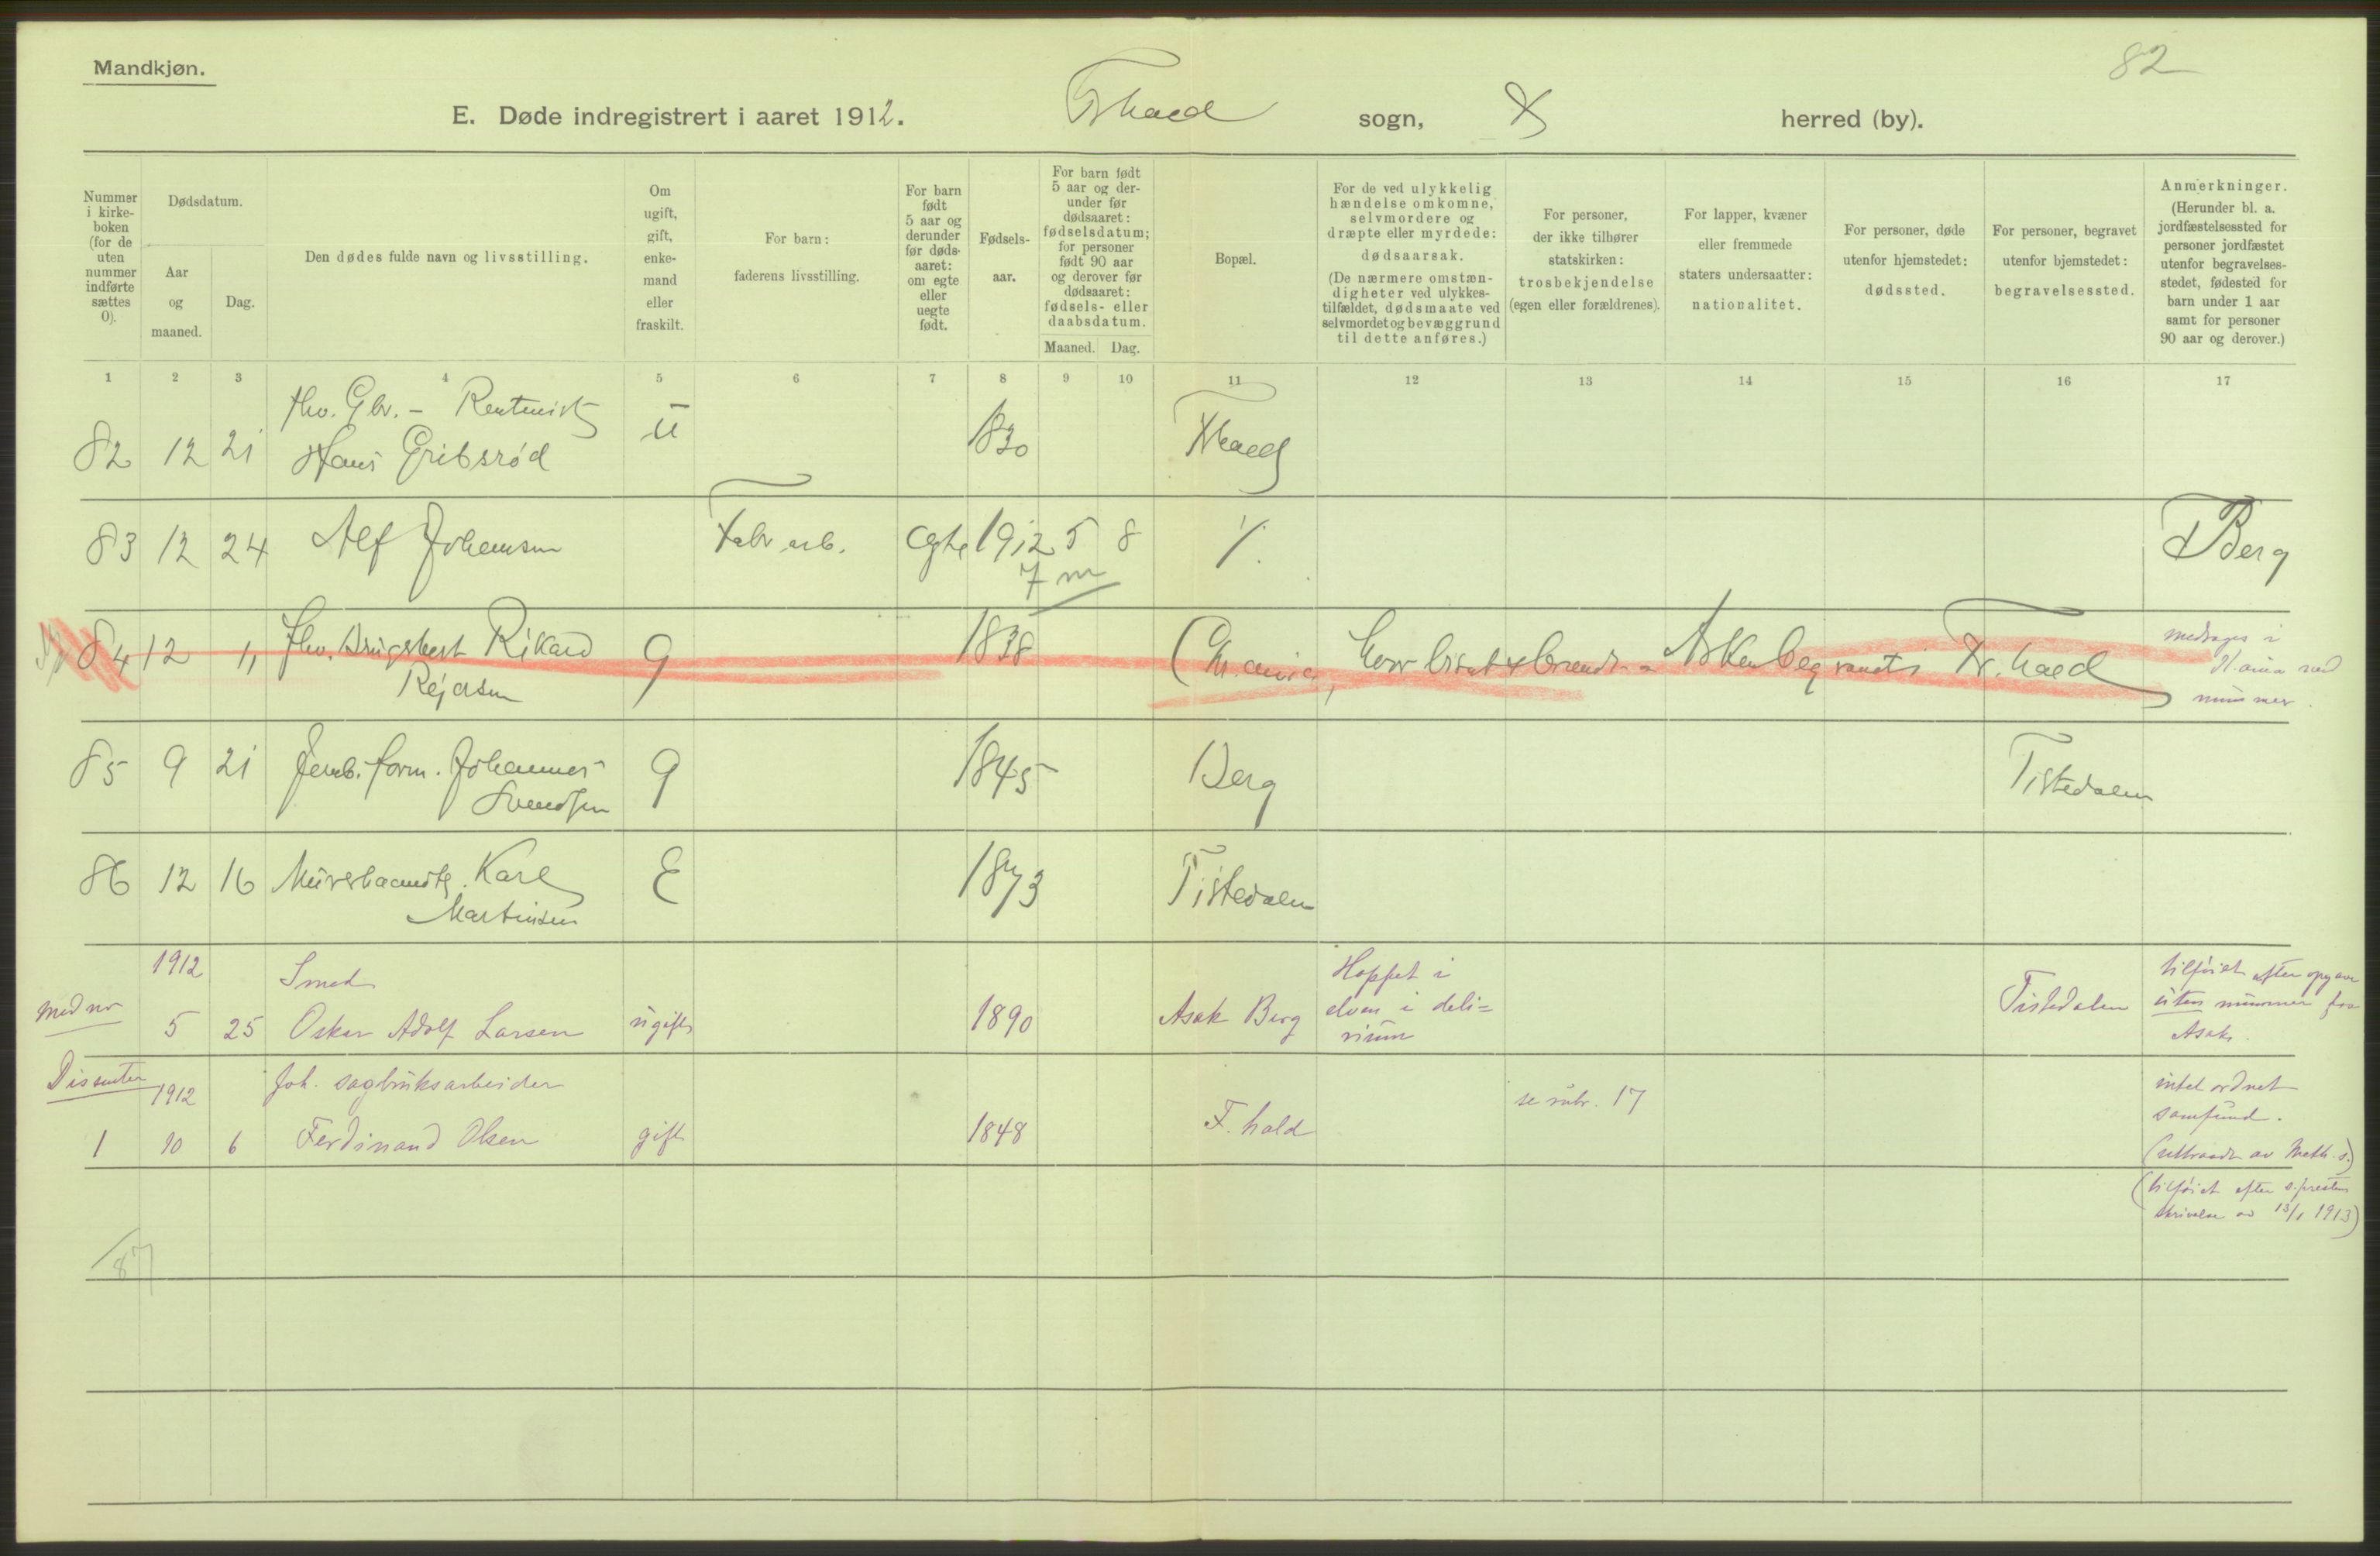 Mandkjøn.
82
E. Døde indregistrert i aaret 1912. Frhald sogn, herred (by).
Nummer i kirke- boken (for de uten nummer indførte sættes 0).
Dødsdatum.
Aar og maaned.
Dag.
Den dødes fulde navn og livsstilling.
Om ugift, gift, enke- mand eller fraskilt.
For barn: faderens livsstilling.
For barn født 5 aar og derunder før døds- aaret: om egte eller uegte født.
Fødsels- aar.
For barn født 5 aar og der- under før dødsaaret: fødselsdatum; for personer født 90 aar og derover før dødsaaret: fødsels- eller daabsdatum.
Maaned. Dag.
Bopæl.
For de ved ulykkelig hændelse omkomne, selvmordere og dræpte eller myrdede: dødsaarsak.
(De nærmere omstæn- digheter ved ulykkes- tilfældet, dødsmaate ved selvmordet og bevæggrund til dette anføres.)
For personer, der ikke tilhører statskirken: trosbekjendelse (egen eller forældrenes).
For lapper, kvæner eller fremmede staters undersaatter: nationalitet.
For personer, døde utenfor hjemstedet: dødssted.
For personer, begravet utenfor bjemstedet: begravelsessted.
Anmerkninger. (Herunder bl. a. jordfæstelsessted for personer jordfæstet utenfor begravelses- stedet, fødested for barn under 1 aar samt for personer 90 aar og derover.)
1 2 3 4 5 6 7 8 9 10 11 12 13 14 15 16 17
fhv. Gbr. - Rentenist
82 12 21 Hans Gribsrød U 1830 Frhald
83 12 24 Alf Johansen Fabr.arb. egte 1912 5 8 Berg
7 m
84 12 11 fhv. Brugsbest Rikard G 1838 (Kr.ania, hvor liket brændt - Asken begravet i Fr.hald
Rejersen
medtages i
K.ania med
nummer.
85 9 21 Jernb. form. Johannes G 1845 Berg Tistedalen
Svendsen
86 12 16 Murerhaandtl. Karl E 1873 Tistedalen
Martinsen
1912 Smed Hoppet i tilføiet efter opgave
med nr 5 25 Oskar Adolf Larsen ugift 1890 Asak Berg elven i deli= Tistedalen uten nummer fra
rium Asak.
Dissenter 1912 Joh. sagbruksarbeider se rubr. 17 intet ordnet
samfund.
1 10 6 Ferdinand Olsen gift 1848 F. hald (uttraadt av Meth. s.)
(tilføiet efter s.prestens
skrivelse av 13/1 1913)
87